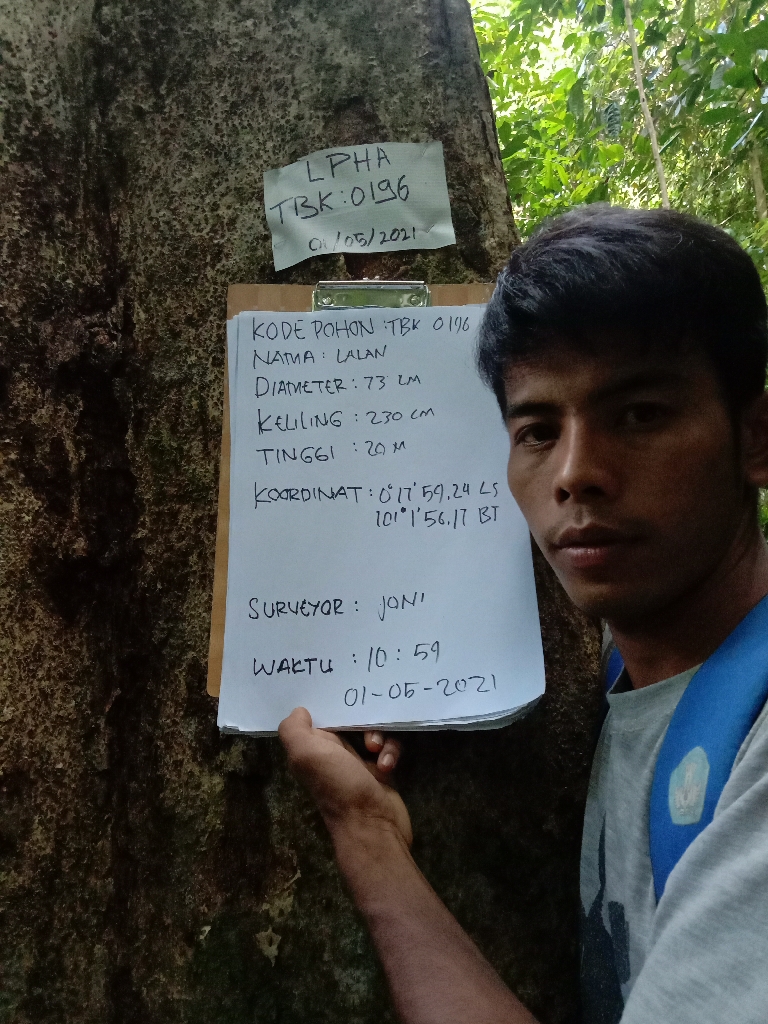 LPHA
TBK : 0196
01/05/2021
KODE POHON : TBK 0196
NAMA : LALAN
DIAMETER : 73 CM
KELILING : 230 CM
TINGGI : 20 M
KOORDINAT : 0°17'59,24 LS
101°1'56,17 BT
SURVEYOR : JONI
WAKTU : 10 : 59
01-05-2021